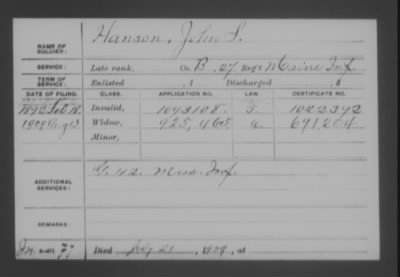 NAME OF SOLDIER: Hanson, John S.
SERVICE: Late rank, Co. B, 27 Reg't Maine Inf.
TERM OF SERVICE: Enlisted , 1 Discharged , 1
DATE OF FILING. CLASS. APPLICATION NO. LAW. CERTIFICATE NO.
1892 Invalid, 1093108 1022342
1909 Widow, 925,465 a. 691,204
Minor,
ADDITIONAL SERVICES: G. 42 Mass. Inf.
REMARKS:
Died , 1909, at